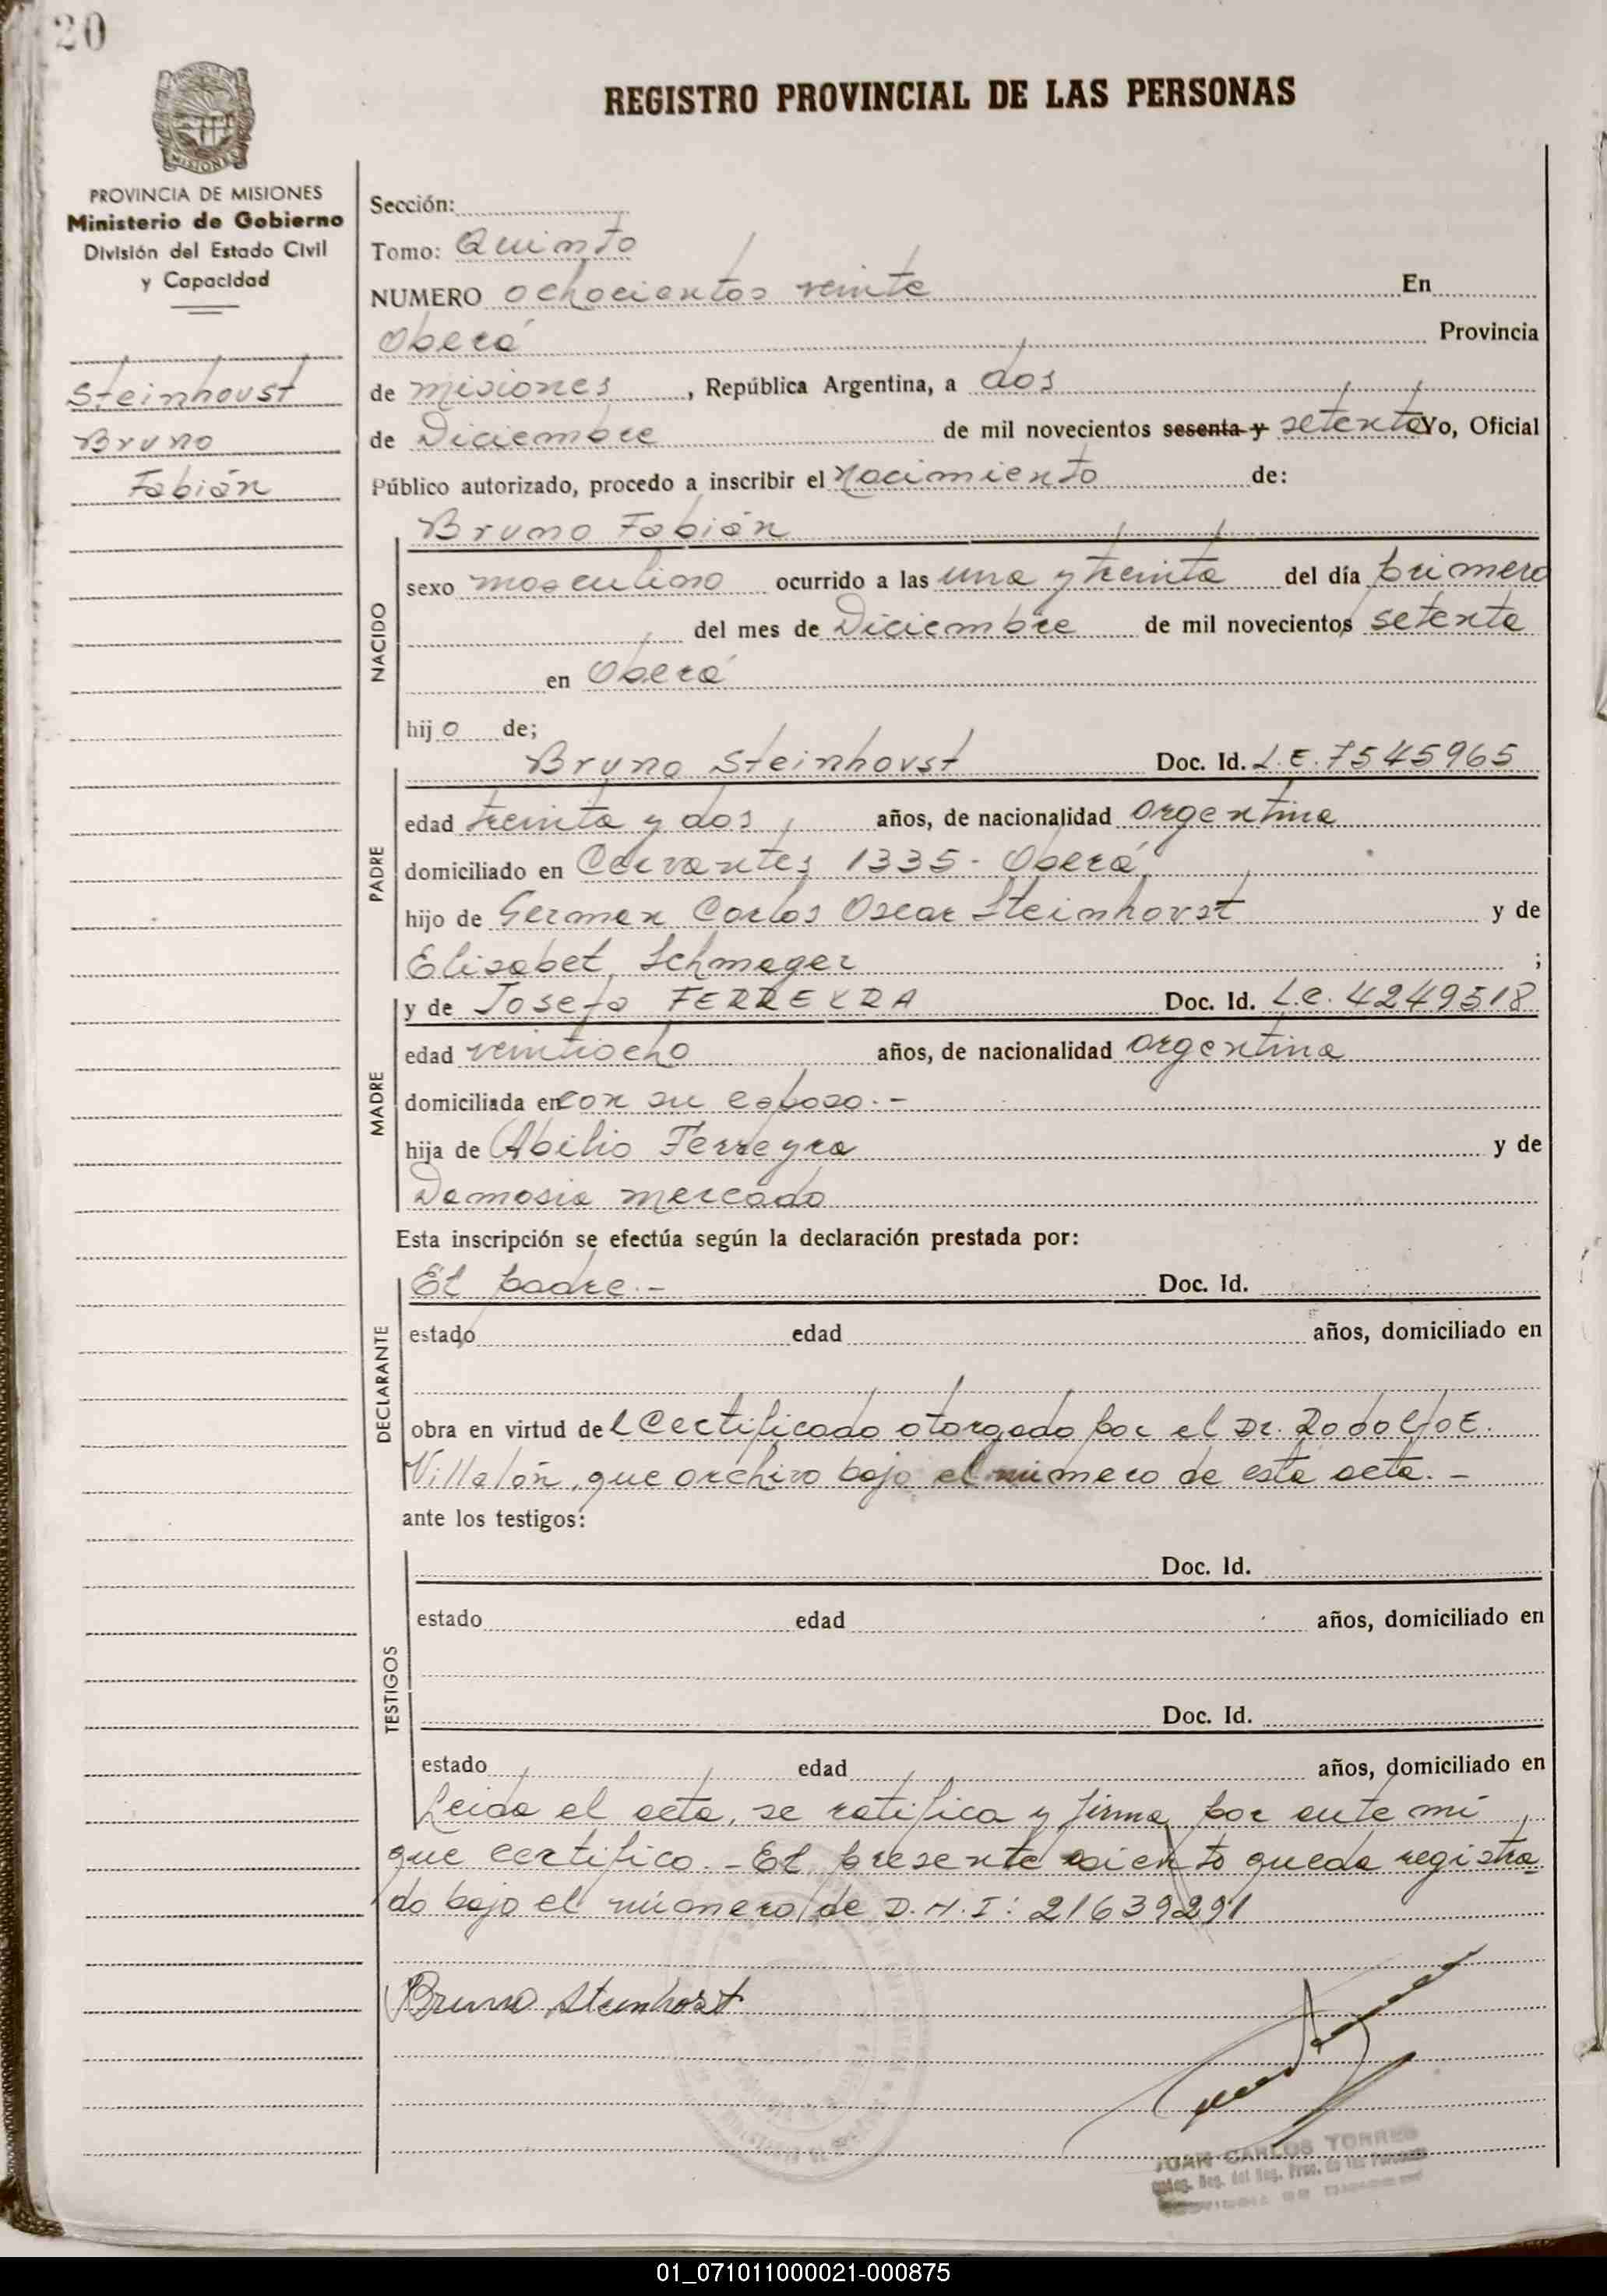 20
REGISTRO PROVINCIAL DE LAS PERSONAS
MISIONES
PROVINCIA DE MISIONES
Ministerio de Gobierno
División del Estado Civil
y Capacidad
Steinhorst
Bruno
Fabián
Sección:
Tomo: Quinto
NUMERO ochocientos veinte En
Oberá Provincia
de misiones, República Argentina, a dos
de Diciembre de mil novecientos sesenta y setenta Yo, Oficial
Público autorizado, procedo a inscribir el Nacimiento de:
NACIDO
Bruno Fabián
sexo masculino ocurrido a las una y treinta del día primero
del mes de Diciembre de mil novecientos setenta
en Oberá
hijo de;
PADRE
Bruno Steinhorst Doc. Id. L.E. 7545965
edad treinta y dos años, de nacionalidad argentina
domiciliado en Cervantes 1335- Oberá
hijo de German Carlos Oscar Steinhorst y de
Elisabet Schmager ;
MADRE
y de Josefa FERREYRA Doc. Id. L.C. 4249518
edad veintiocho años, de nacionalidad argentina
domiciliada en con su esposo.-
hija de Abilio Ferreyra y de
Damasia mercado
Esta inscripción se efectúa según la declaración prestada por:
DECLARANTE
El padre.- Doc. Id.
estado edad años, domiciliado en
obra en virtud del Certificado otorgado por el Dr. Rodolfo E.
Villalón, que archivo bajo el número de esta acta.-
ante los testigos:
TESTIGOS
Doc. Id.
estado edad años, domiciliado en
Doc. Id.
estado edad años, domiciliado en
Leida el acta, se ratifica y firma por ante mí
que certifico.- El presente asiento queda registra
do bajo el número de D.N.I: 21639291
Bruno Steinhorst
JUAN CARLOS TORRES
01_071011000021-000875